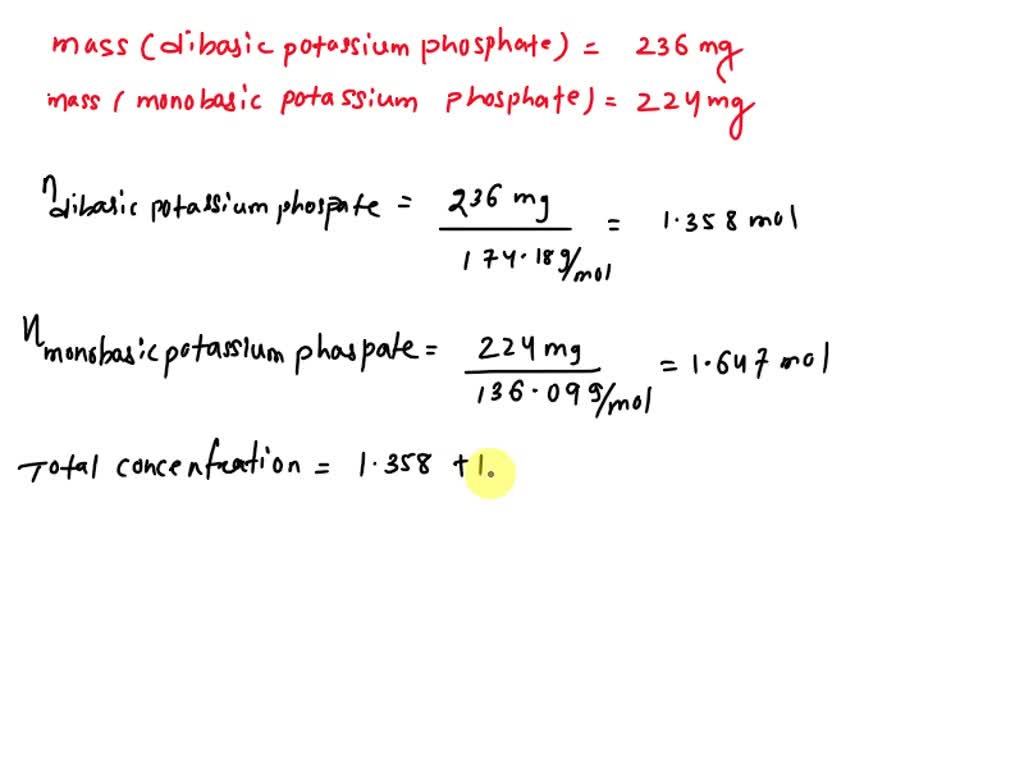 mass (dibasic potassium phosphate) = 236 mg
mass ( monobasic potassium phosphate) = 224 mg
ηdibasic potassium phospate = 236 mg / 174.18 g/mol = 1.358 mol
ηmonobasic potassium phaspate = 224 mg / 136.09 g/mol = 1.647 mol
Total concentration = 1.358 + 1.